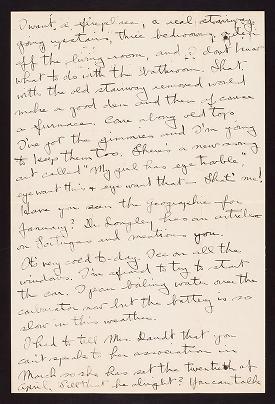 I want a fireplace, a real stairway
going upstairs, three bedrooms, a den
off the living room, and I don't know
what to do with the bathroom. That
with the old stairway removed would
make a good den and then of course
a furnace. Come along old top
I've got the gimmies and I'm going
to keep them too. There's a new song
out called "My girl has eye trouble"
eye want this & eye want that — That's me!
Have you seen the Geographic for
January? Dr. Longley has an article
on Tortugas and mentions you.
It's very cold to-day. Ice on all the
windows. I'm afraid to try to start
the car. I pour boiling water over the
carburator now but the battery is so
slow in this weather.
I had to tell Mrs. Daudt that you
can't speak to her association in
March so she has set the twentieth of
April. Will that be alright? You can talk